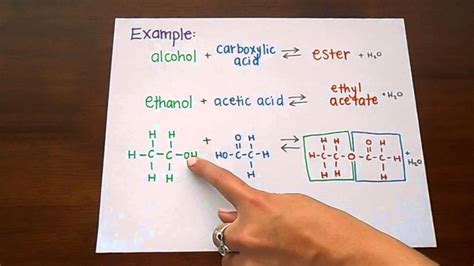 Example:
alcohol + carboxylic acid ⇌ ester + H₂O
ethanol + acetic acid ⇌ ethyl acetate + H₂O
H H O H H H O H
H-C-C-OH + HO-C-C-H ⇌ H-C-C-O-C-C-H + H₂O
H H H H H H